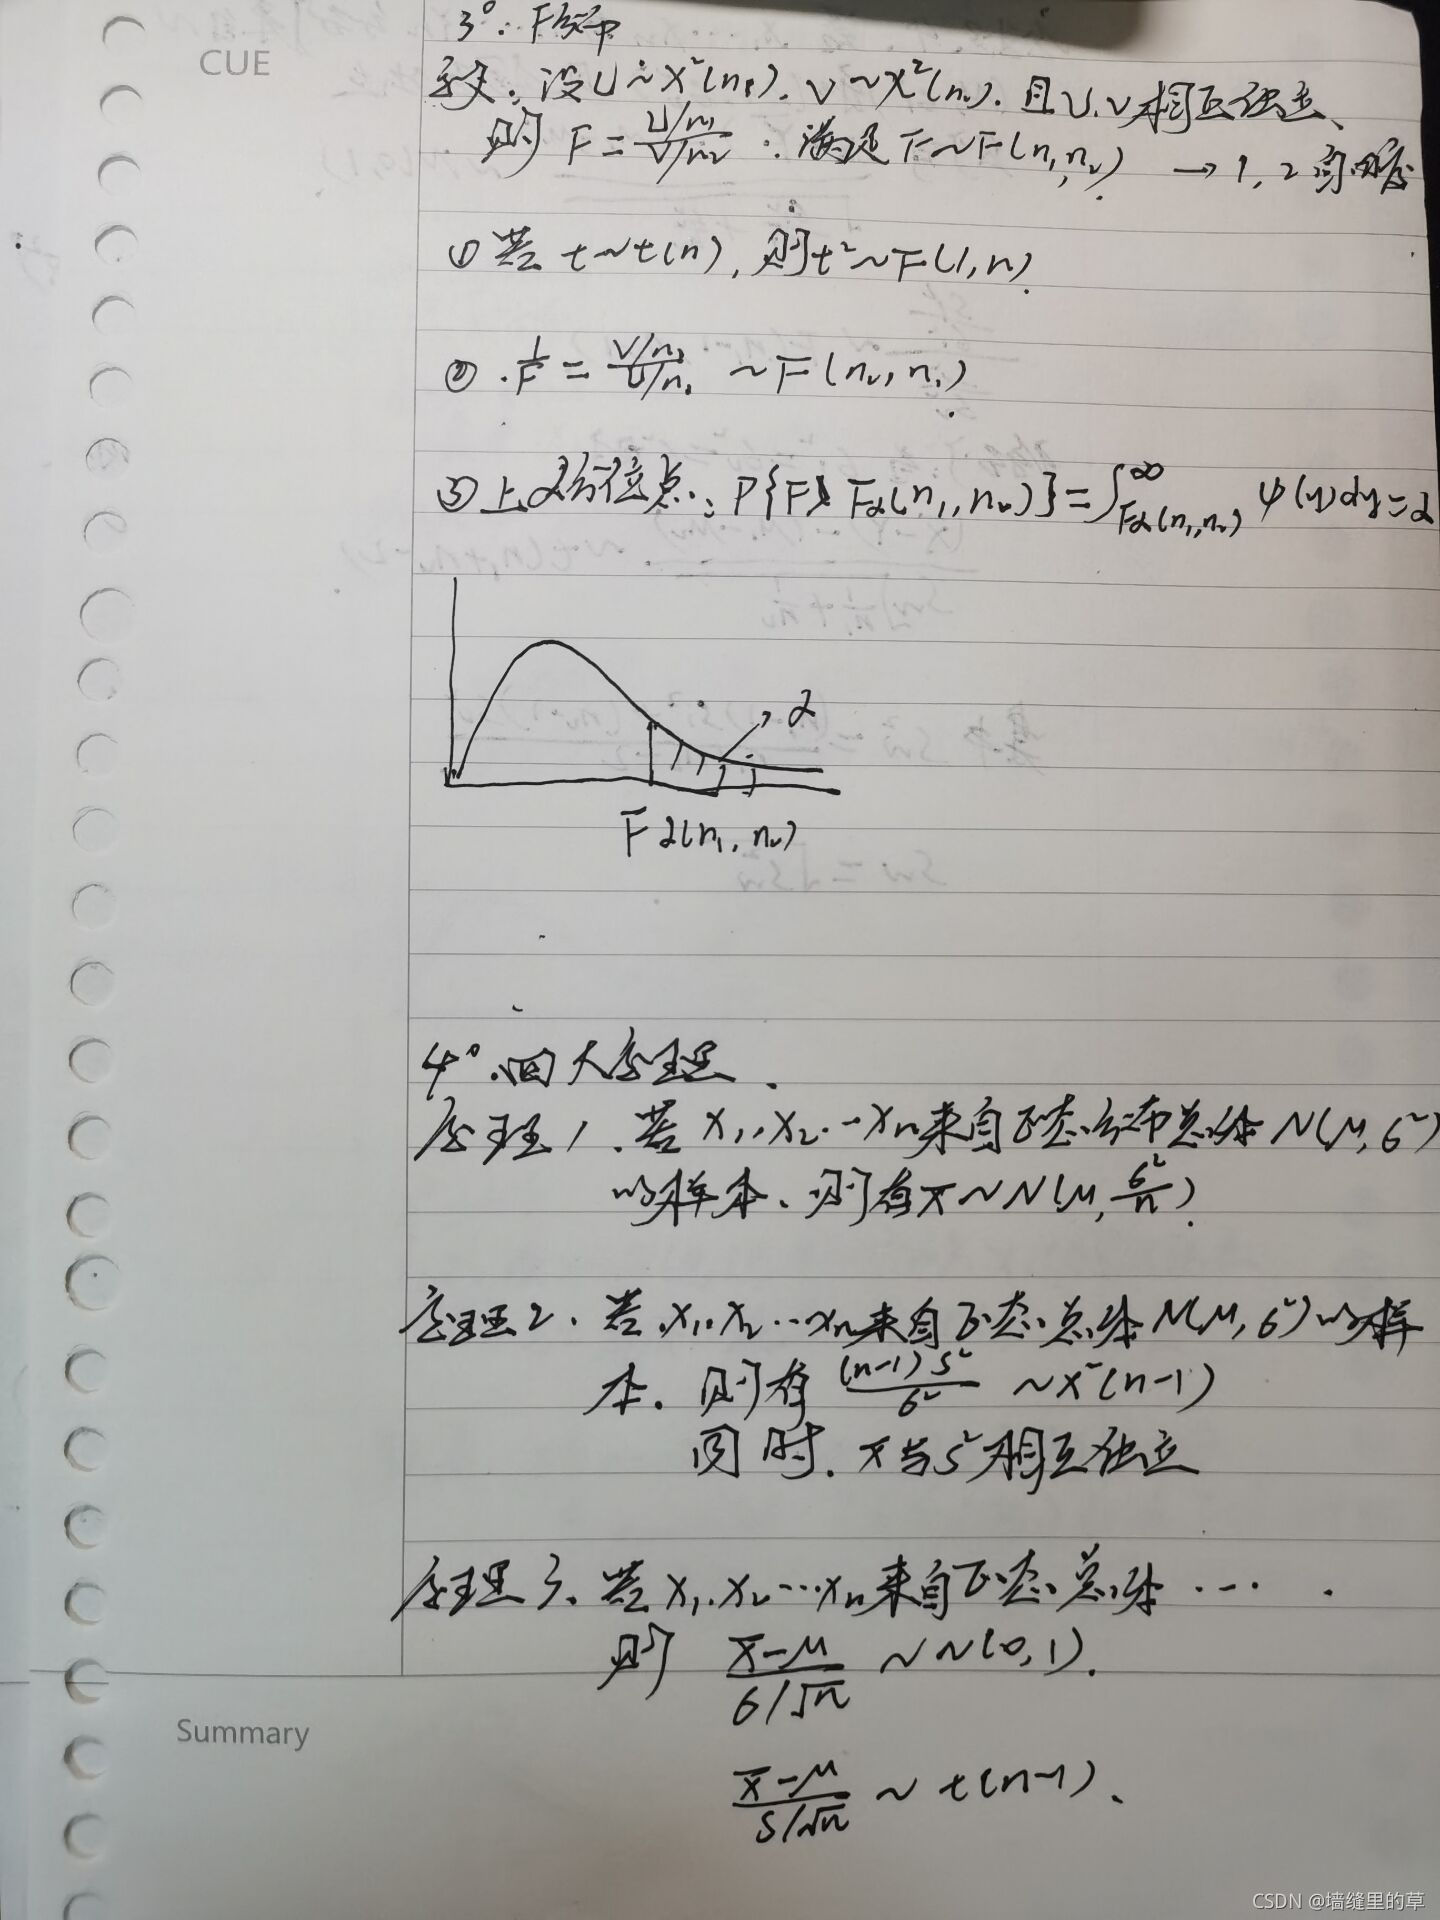 CUE
3°. F分布
定义. 设U~χ²(n₁). V~χ²(n₂). 且U.V相互独立、
则 F = (U/n₁)/(V/n₂) : 满足 F~F(n₁,n₂) → 1, 2自由度
① 若 t~t(n), 则t²~F(1,n).
② 1/F = (V/n₂)/(U/n₁) ~F(n₂, n₁).
③ 上α分位点: P{F> Fα(n₁,n₂)}=∫_{Fα(n₁,n₂)}^∞ ψ(y)dy=α
α
Fα(n₁, n₂)
4°. 四大定理.
定理1. 若 x₁,x₂…xₙ来自正态分布总体 N(μ,σ²)
的样本、则有x̄~N(μ, σ²/n).
定理2. 若x₁.x₂…xₙ来自正态总体N(μ,σ²)的样
本. 则有 (n-1)S²/σ² ~χ²(n-1)
同时. x̄与S²相互独立
定理3. 若x₁.x₂…xₙ来自正态总体…
则 (x̄-μ)/(σ/√n) ~N(0,1).
(x̄-μ)/(S/√n) ~ t(n-1).
Summary
CSDN @墙缝里的草